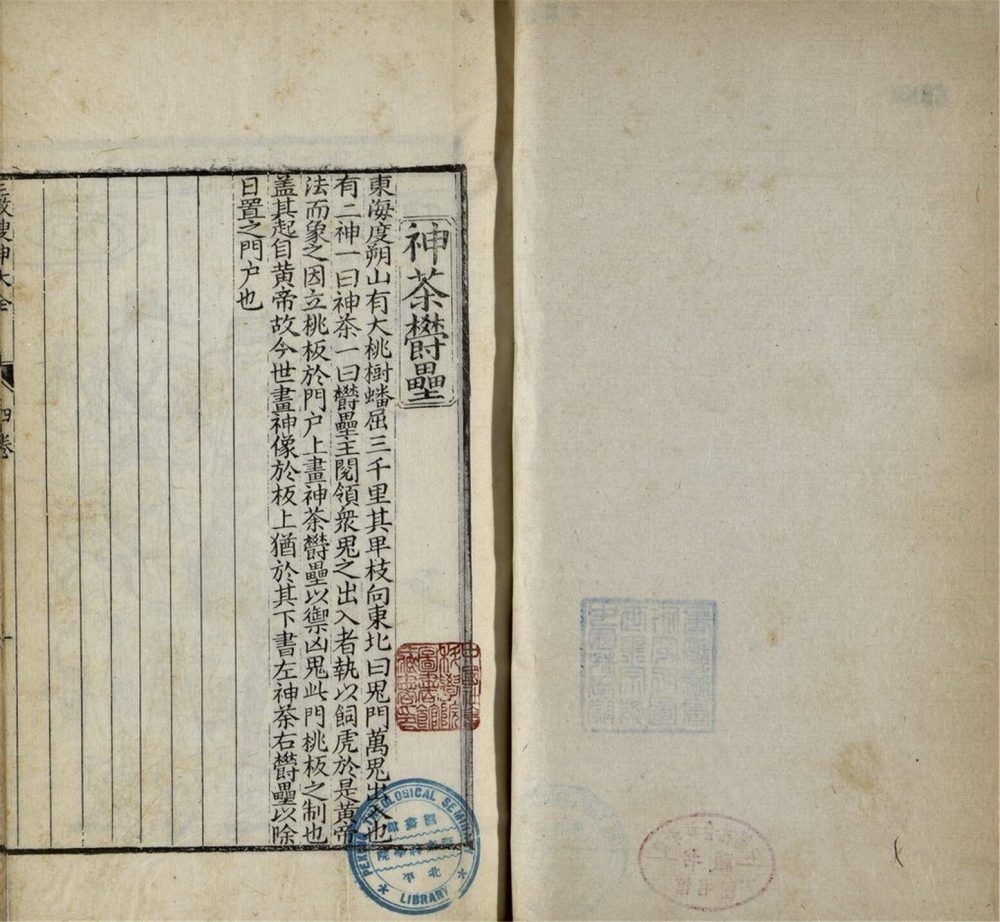 神荼欎壘
東海度朔山有大桃樹蟠屈三千里其卑枝向東北曰鬼門萬鬼出入也
有二神一曰神荼一曰欎壘主閱領衆鬼之出入者執以飼虎於是黃帝
法而象之因立桃板於門户上畫神荼欎壘以禦凶鬼此門桃板之制也
盖其起自黃帝故今世畫神像於板上猶於其下書左神荼右欎壘以除
日置之門户也
三教搜神大全
四卷
一
PEKING THEOLOGICAL SEMINARY
LIBRARY
北平